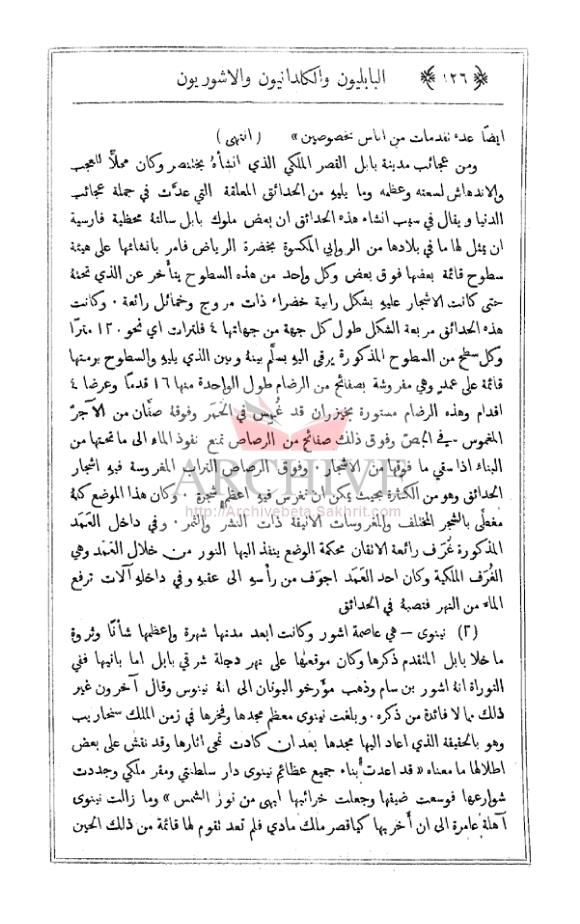 ﴿ ١٢٦ ﴾ البابليون والكلدانيون والاشوريون
ايضًا عدة تقدمات من اناس مخصوصين » (انتهى)
ومن عجائب مدينة بابل القصر الملكي الذي انشأهُ بختنصر وكان محلًّا للعجب
والاندهاش لسعته وعظمه وما يليهِ من الحدائق المعلقة التي عدَّت في جملة عجائب
الدنيا ويقال في سبب انشاء هذه الحدائق ان بعض ملوك بابل سالتهُ محظية فارسية
ان يمثل لها ما في بلادها من الروابي المكسوة بخضرة الرياض فامر بانشائها على هيئة
سطوح قائمة بعضها فوق بعض وكل واحد من هذه السطوح يتأخر عن الذي تحتهُ
حتى كانت الاشجار عليهِ بشكل رابية خضراء ذات مروج وخمائل رائعة . وكانت
هذه الحدائق مربعة الشكل طول كل جهة من جهاتها ٤ فلترات اي نحو ١٢٠ مترًا
وكل سطح من السطوح المذكورة يرقى اليهِ بسلَّم بينهُ وبين الذي يليهِ والسطوح برمتها
قائمة على عمدٍ وهي مفروشة بصفائح من الرضام طول الواحدة منها ١٦ قدمًا وعرضا ٤
اقدام وهذه الرضام مستورة بخيزران قد غُمِس في الحُمَر وفوقهُ صفَّان من الآجرّ
المغموس في الجصّ وفوق ذلك صفائح من الرصاص تمنع نفوذ الماء الى ما تحتها من
البناء اذا سقي ما فوقها من الاشجار . وفوق الرصاص التراب المغروسة فيهِ اشجار
الحدائق وهو من الكثرة بحيث يمكن ان تغرس فيهِ اعظم شجرة . وكان هذا الموضع كلهُ
مغطًى بالشجر المختلف والمغروسات الانيقة ذات النشر والثمر . وفي داخل العَمَد
المذكورة غُرَف رائعة الاتقان محكمة الوضع ينفذ اليها النور من خلال العَمَد وهي
الغُرَف الملكية وكان احد العَمَد اجوف من رأسهِ الى عقبهِ وفي داخلهِ آلات ترفع
الماء من النهر فتصبهُ في الحدائق
(٢) نينوى – هي عاصمة اشور وكانت ابعد مدنها شهرة واعظمها شأنًا وثروة
ما خلا بابل المتقدم ذكرها وكان موقعها على نهر دجلة شرقي بابل اما بانيها ففي
التوراة انهُ اشور بن سام وذهب مؤرخو اليونان الى انهُ نينوس وقال آخرون غير
ذلك مما لا فائدة من ذكره . وبلغت نينوى معظم مجدها وفخرها في زمن الملك سنحاريب
وهو بالحقيقة الذي اعاد اليها مجدها بعد ان كادت تمحى اثارها وقد نقش على بعض
اطلالها ما معناه « قد اعدت بناء جميع عظائم نينوى دار سلطنتي ومقر ملكي وجددت
شوارعها فوسعت ضيقها وجعلت خرائبها ابهى من نور الشمس » وما زالت نينوى
آهلة عامرة الى ان أخربها كياقصر ملك مادي فلم تعد تقوم لها قائمة من ذلك الحين
ARCHIVE
http://Archivebeta.Sakhrit.com